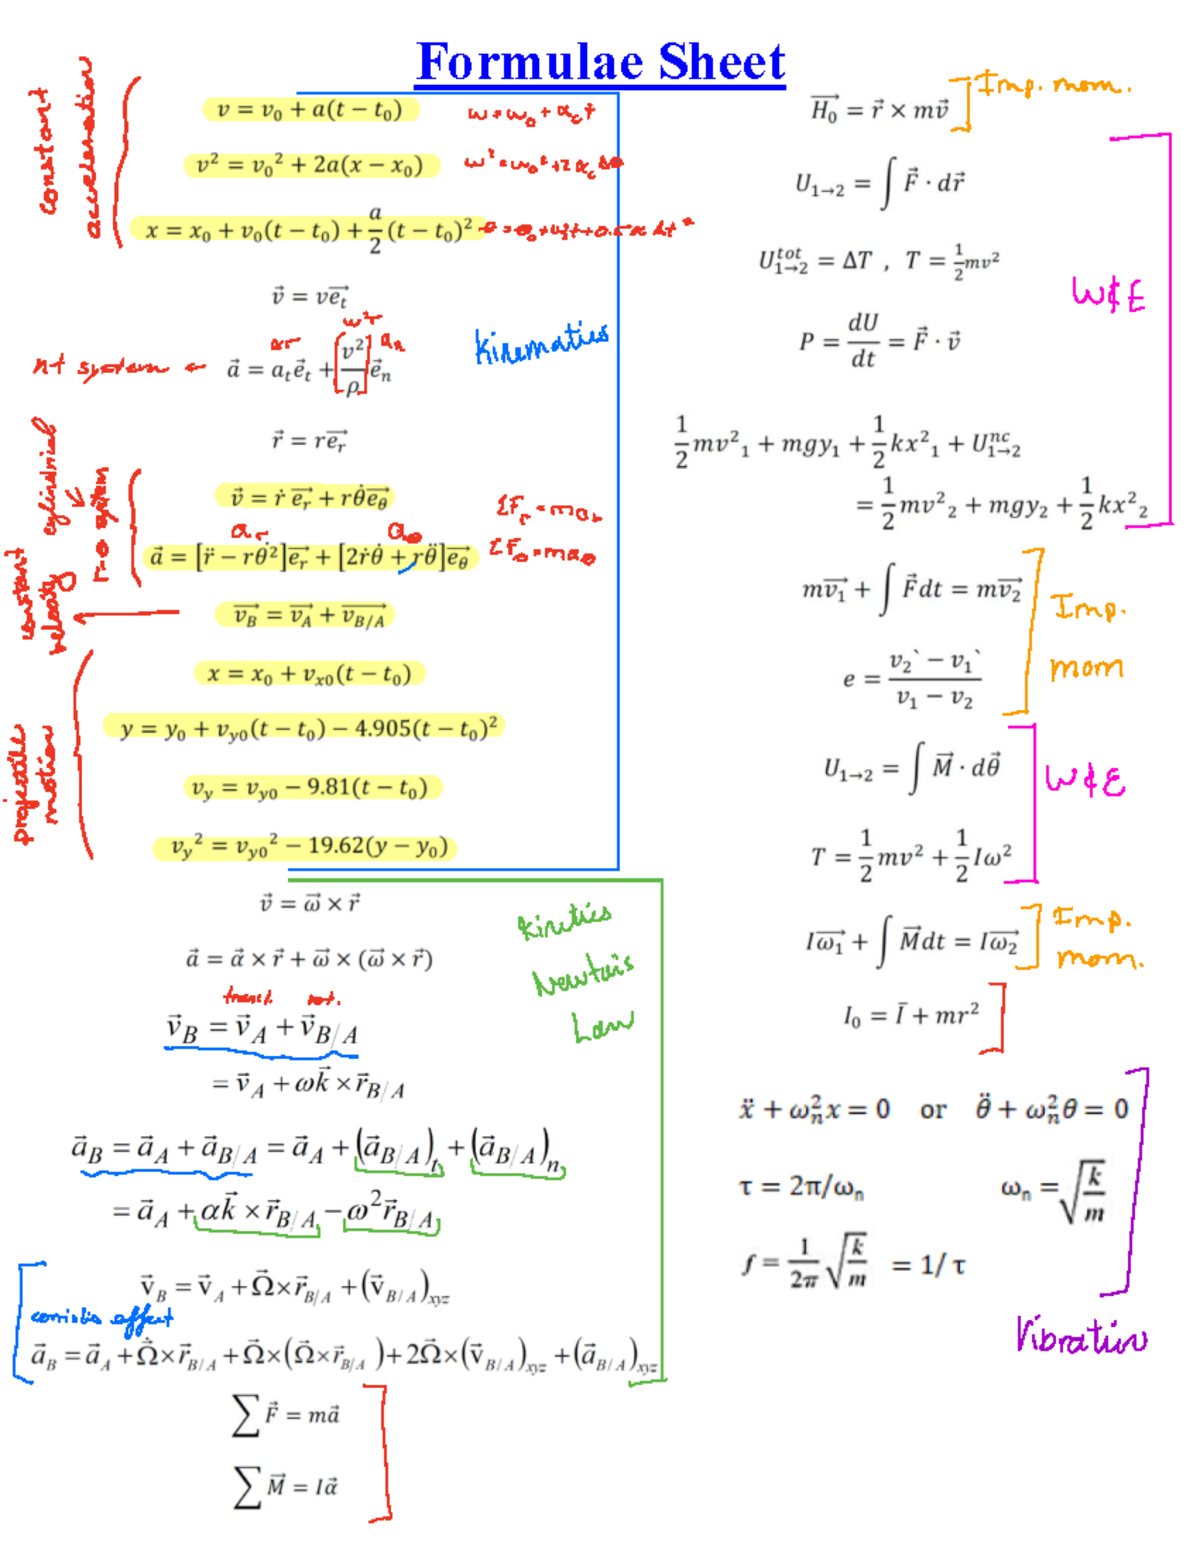 Formulae Sheet
constant
acceleration
v = v₀ + a(t − t₀)
ω = ω₀ + α_c t
v² = v₀² + 2a(x − x₀)
ω² = ω₀² + 2α_c Δθ
x = x₀ + v₀(t − t₀) + a/2 (t − t₀)²
v⃗ = v e⃗_t
ω²r
αr
a_n
nt system ←
a⃗ = a_t e⃗_t + [v²/ρ] e⃗_n
Kinematics
r⃗ = r e⃗_r
cylindrical
r-θ system
v⃗ = ṙ e⃗_r + rθ̇ e⃗_θ
ΣF_r = ma_r
a_r
a_θ
a⃗ = [r̈ − rθ̇²] e⃗_r + [2ṙθ̇ + rθ̈] e⃗_θ
ΣF_θ = ma_θ
constant
velocity
v⃗_B = v⃗_A + v⃗_B/A
projectile
motion
x = x₀ + v_x0(t − t₀)
y = y₀ + v_y0(t − t₀) − 4.905(t − t₀)²
v_y = v_y0 − 9.81(t − t₀)
v_y² = v_y0² − 19.62(y − y₀)
v⃗ = ω⃗ × r⃗
Kinetics
Newton's
Law
a⃗ = α⃗ × r⃗ + ω⃗ × (ω⃗ × r⃗)
transl. rot.
v⃗_B = v⃗_A + v⃗_B/A
= v⃗_A + ωk⃗ × r⃗_B/A
a⃗_B = a⃗_A + a⃗_B/A = a⃗_A + (a⃗_B/A)_t + (a⃗_B/A)_n
= a⃗_A + αk⃗ × r⃗_B/A − ω² r⃗_B/A
v⃗_B = v⃗_A + Ω⃗ × r⃗_B/A + (v⃗_B/A)_xyz
corriolis effect
a⃗_B = a⃗_A + Ω⃗̇ × r⃗_B/A + Ω⃗ × (Ω⃗ × r⃗_B/A) + 2Ω⃗ × (v⃗_B/A)_xyz + (a⃗_B/A)_xyz
∑ F⃗ = ma⃗
∑ M⃗ = Iα⃗
H⃗₀ = r⃗ × mv⃗
Imp. mom.
U₁→₂ = ∫ F⃗ · dr⃗
U₁→₂^tot = ΔT , T = ½mv²
W & E
P = dU/dt = F⃗ · v⃗
½mv²₁ + mgy₁ + ½kx²₁ + U₁→₂^nc
= ½mv²₂ + mgy₂ + ½kx²₂
mv⃗₁ + ∫ F⃗dt = mv⃗₂
Imp.
mom
e = (v₂` − v₁`)/(v₁ − v₂)
U₁→₂ = ∫ M⃗ · dθ⃗
W & E
T = ½mv² + ½Iω²
Iω⃗₁ + ∫ M⃗dt = Iω⃗₂
Imp.
mom.
I₀ = Ī + mr²
ẍ + ω_n²x = 0 or θ̈ + ω_n²θ = 0
τ = 2π/ω_n ω_n = √(k/m)
f = 1/2π √(k/m) = 1/τ
Vibration